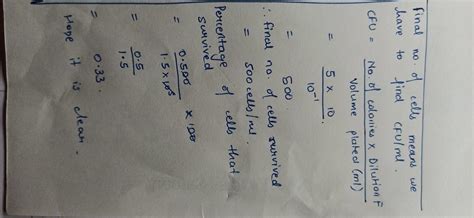 final no. of cells means we
have to find CFU/ml.
CFU = No. of colonies x Dilution F
Volume plated (ml)
= 5 x 10
10⁻¹
= 500
∴ final no. of cells survived
= 500 cells/ml.
Percentage of cells that
survived
= 0.500 x 100
1.5 x 10⁵
= 0.5
1.5
= 0.33.
Hope it is clear.